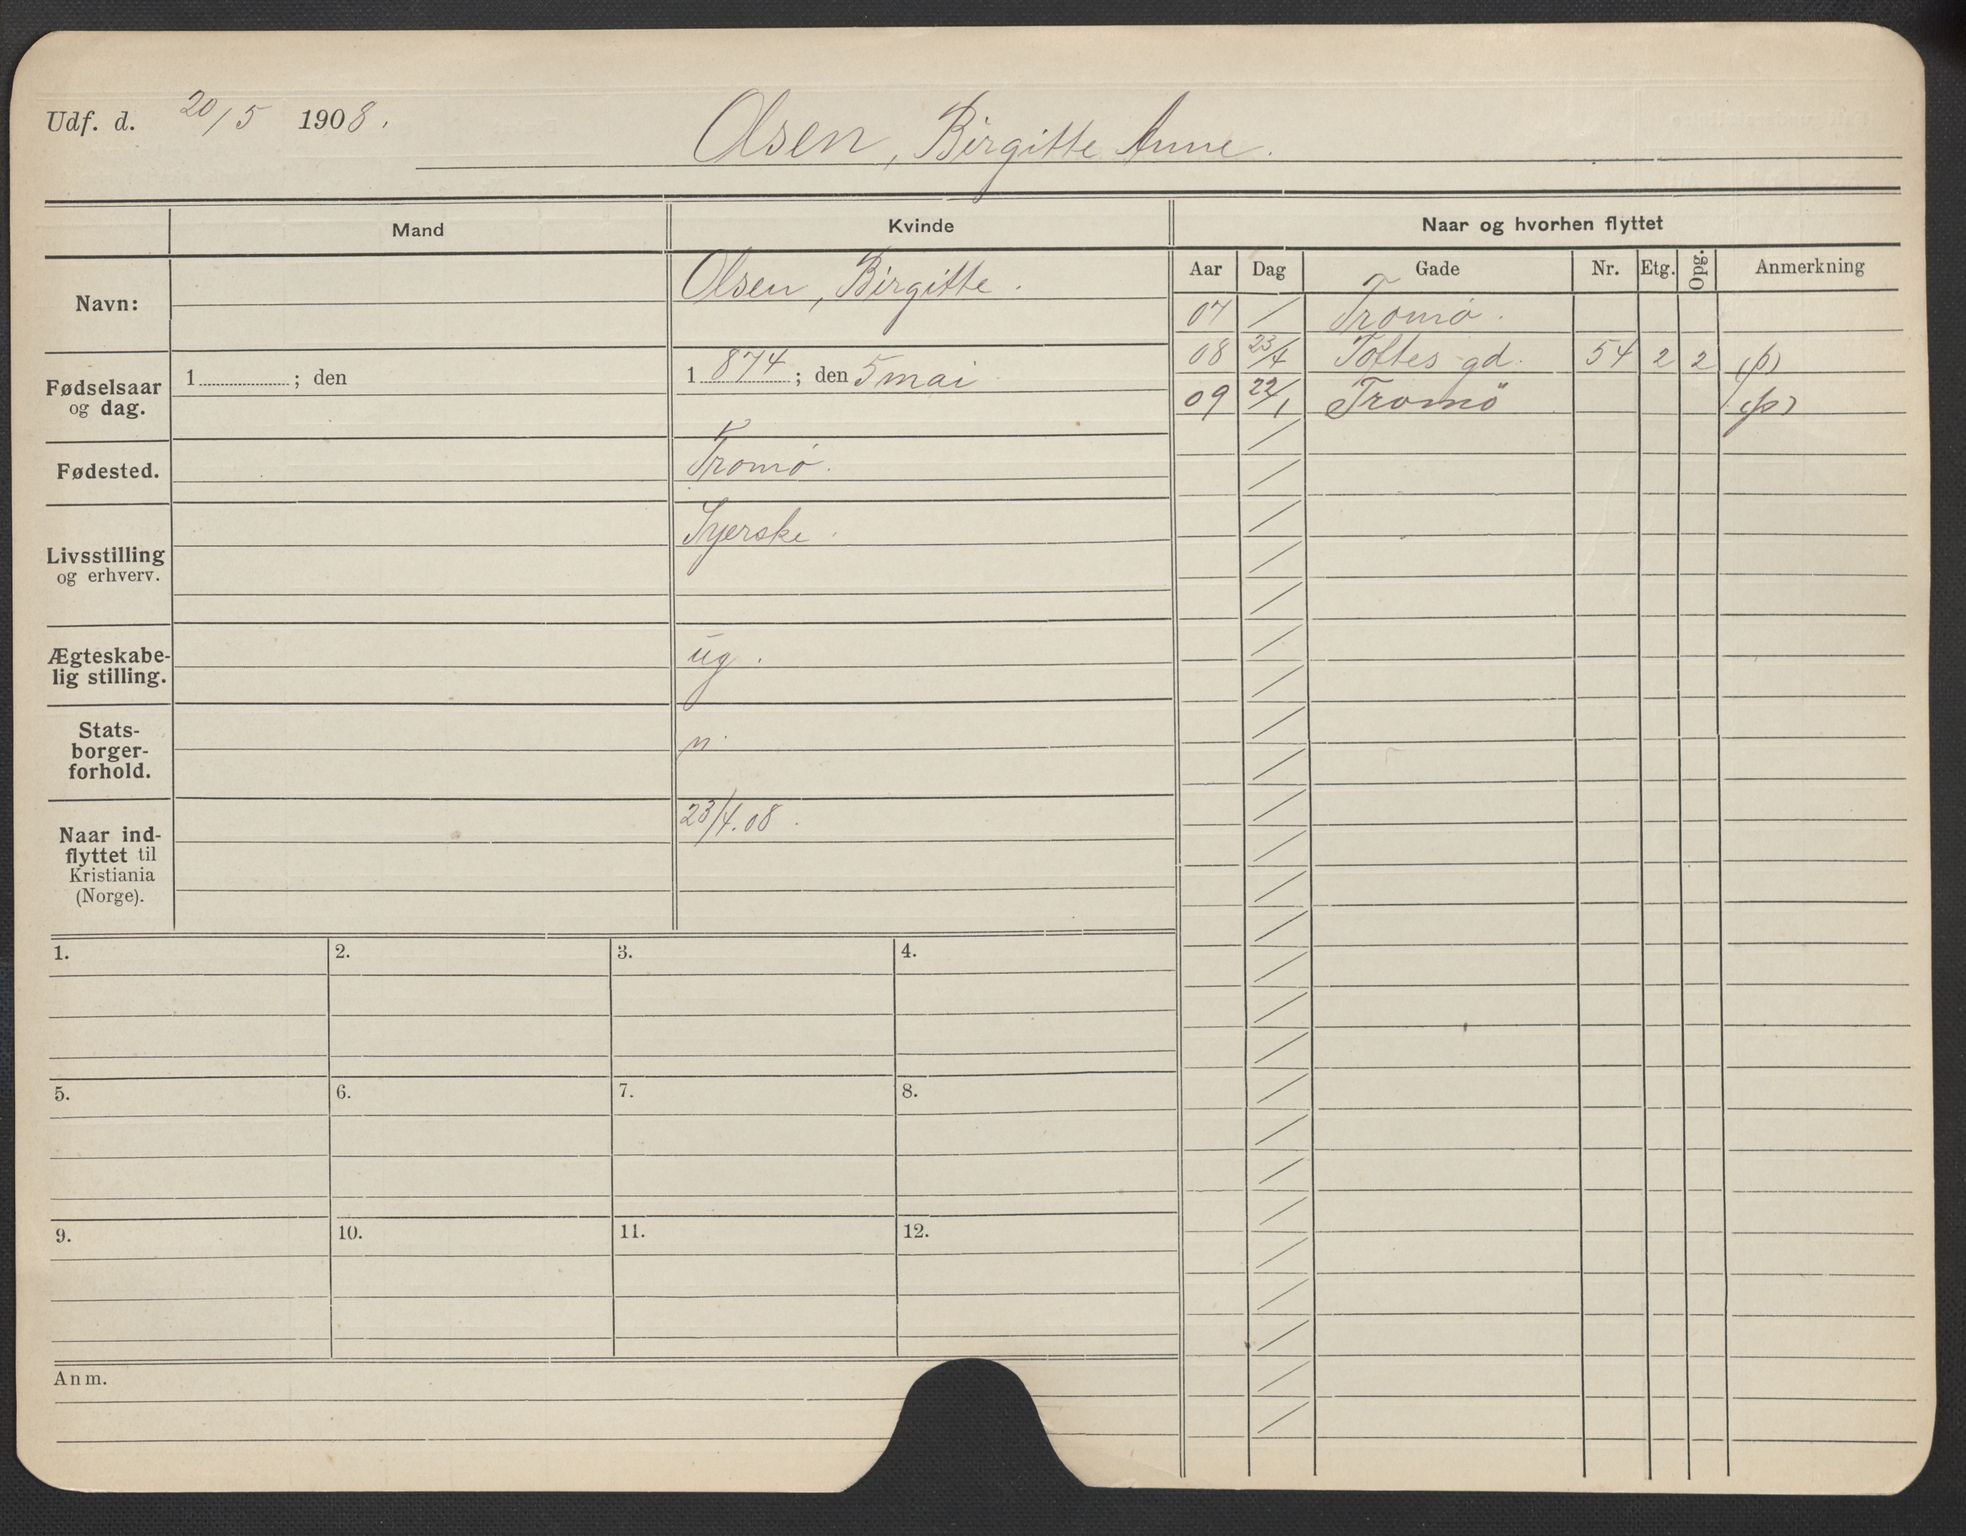 Udf. d. 20/5 1908.
Olsen, Birgitte Anne.
Mand
Kvinde
Naar og hvorhen flyttet
Navn:
Olsen, Birgitte.
Fødselsaar
og dag.
1 ; den
1874; den 5 mai
Fødested.
Tromø.
Livsstilling
og erhverv.
Syerske.
Ægteskabe-
lig stilling.
ug.
Stats-
borger-
forhold.
n.
Naar ind-
flyttet til
Kristiania
(Norge).
23/4.08.
Aar Dag Gade Nr. Etg. Opg. Anmerkning
07 / Tromø.
08 23/4 Toftes gd. 54 2 2 (p)
09 22/1 Tromö (p)
1. 2. 3. 4.
5. 6. 7. 8.
9. 10. 11. 12.
Anm.